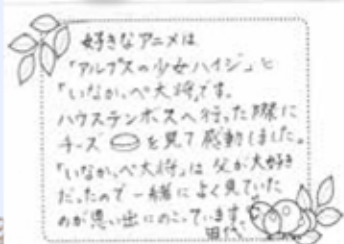 好きなアニメは
「アルプスの少女ハイジ」と
「いなかっぺ大将」です。
ハウステンボスへ行った際に
チーズ を見て感動しました。
「いなかっぺ大将」は父が大好き
だったので一緒によく見ていた
のが思い出にのこっています。
田代